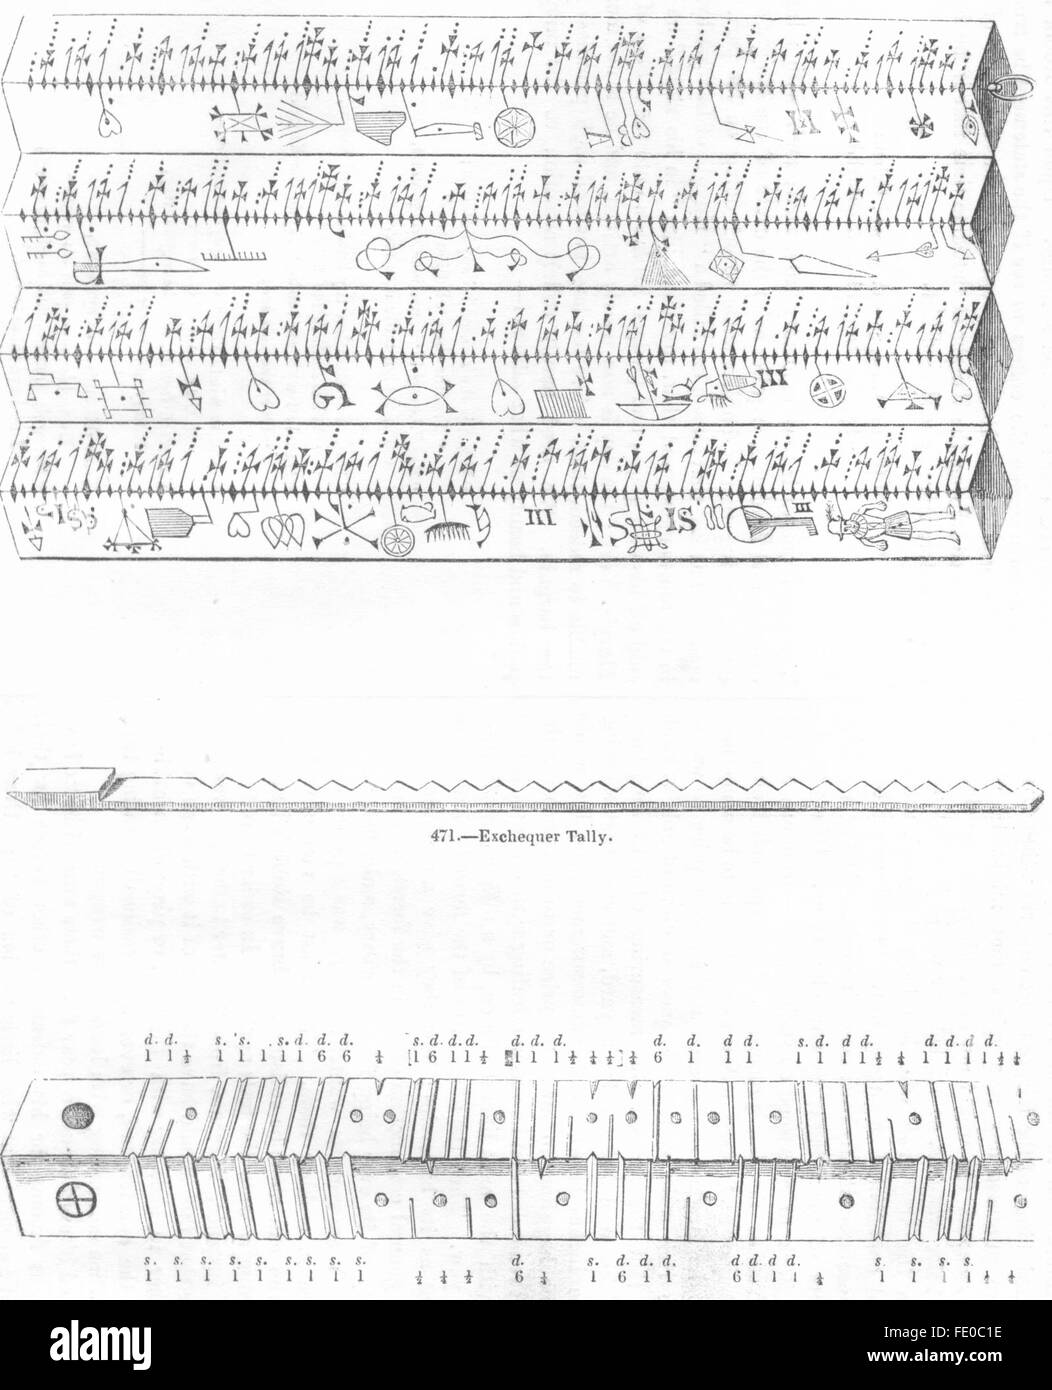 471.—Exchequer Tally.
d. d. s. s. s. d. d. d. s. d. d. d. d. d. d. d. d. d. d. s. d. d. d. d. d. d. d.
1 1 ½ 1 1 1 1 1 6 6 ¼ [1 6 1 1 ½ 1 1 1 ½ ¼ ½] ¼ 6 1 1 1 1 1 1 1 ½ ¼ 1 1 1 1 ½ ¼
s. s. s. s. s. s. s. s. s. d. s. d. d. d. d d. d. d. s. s. s. s.
1 1 1 1 1 1 1 1 1 ½ ½ ½ 6 ¼ 1 6 1 1 6 1 1 1 ¼ 1 1 1 1 ½ ¼
alamy
Image ID: FE0C1E
www.alamy.com